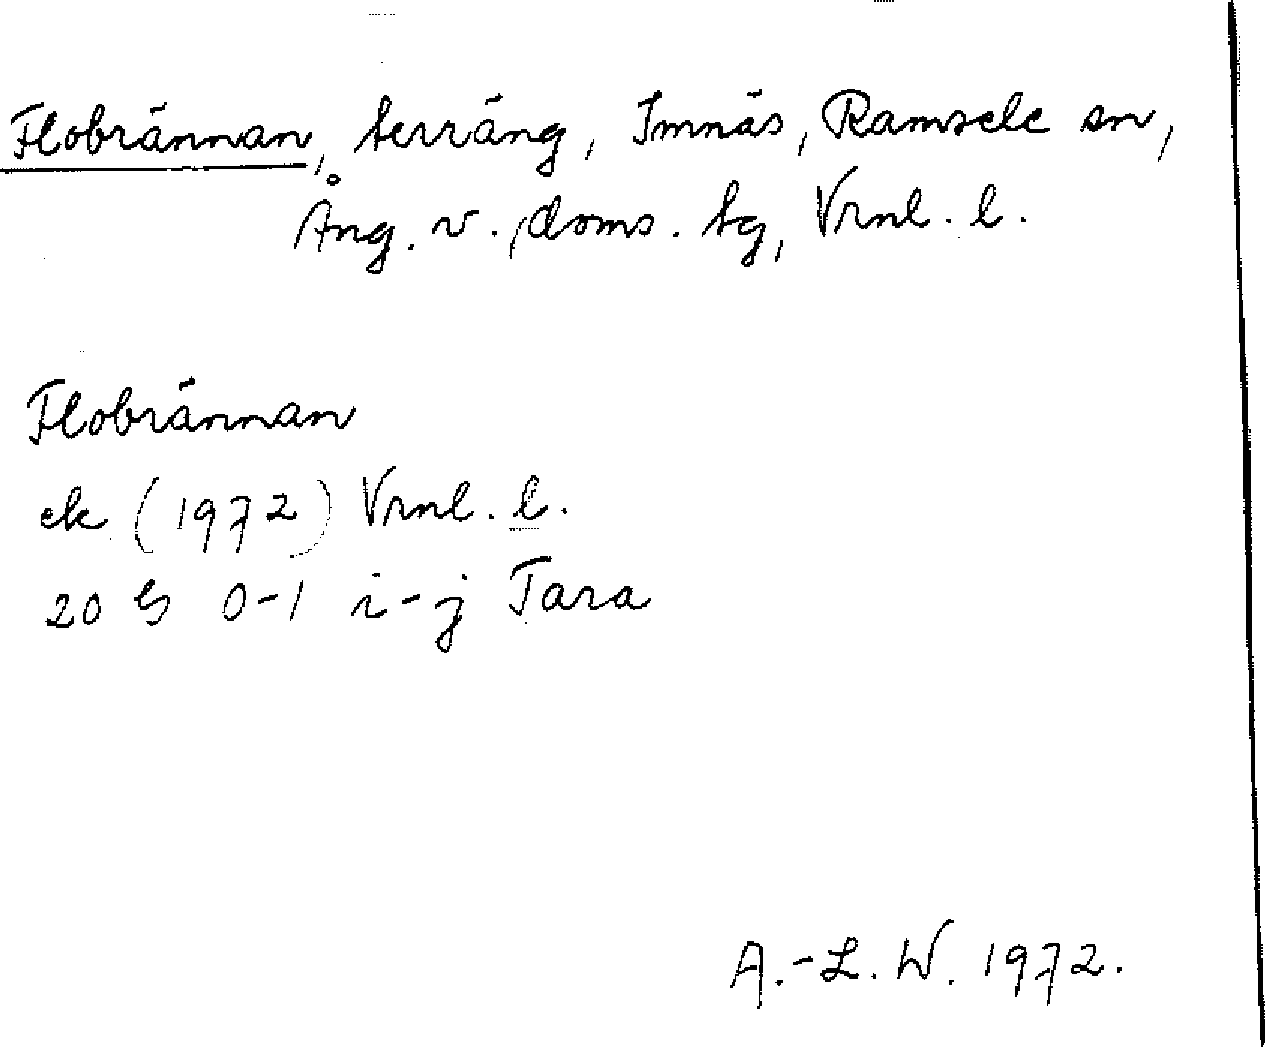 Flobrännan, terräng, Imnäs, Ramsele sn,
Ång. v. doms. tg, Vrnl. l.
Flobrännan
ek (1972) Vrnl. l.
20 G 0-1 i-j Tara
A.-L. W. 1972.